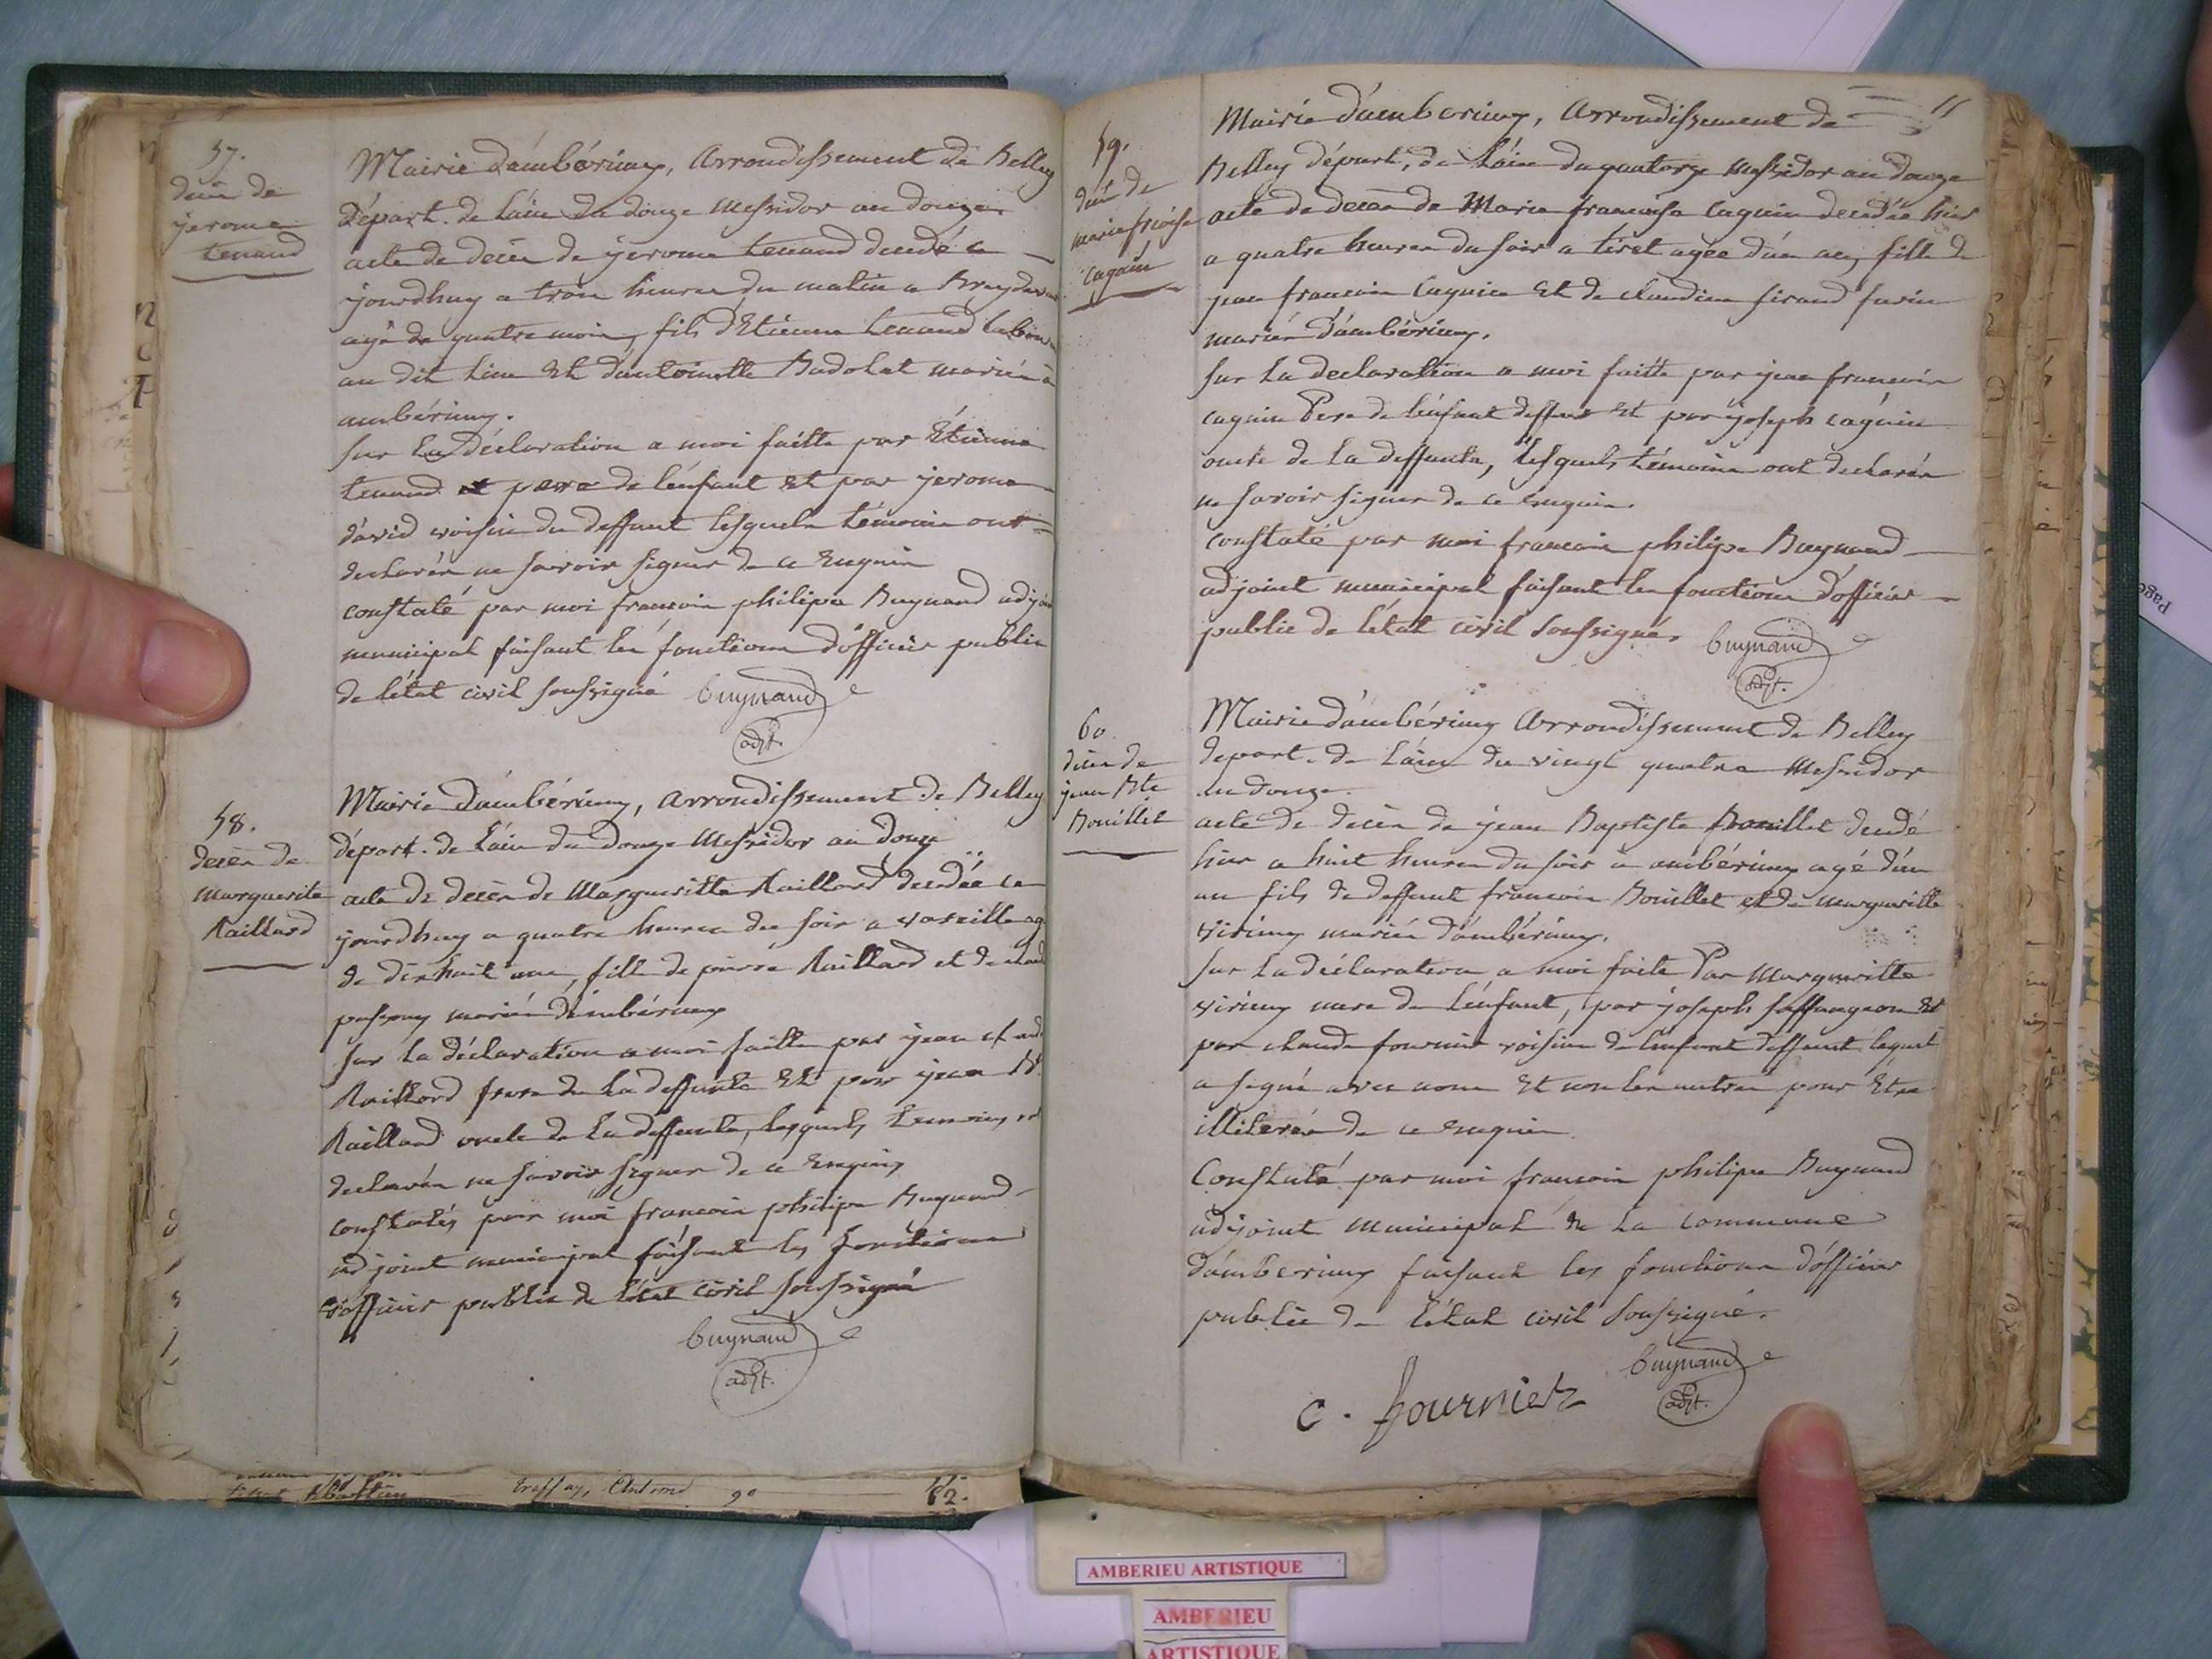 57.
décès de
jerome
tenand
Mairie d'ambérieux, arrondissement de Belley
départ. de l'ain du douze messidor an douze
acte de décès de jerome tenand décédé ce
jourdhuy a trois heures du matin a
agé de quatre mois, fils d'Etienne tenand
au dit lieu et d'antoinette Badolat mariés a
ambérieux.
sur la déclaration a moi faitte par Etienne
tenand et pere de l'enfant et par jerome
david voisin du deffunt lesquels témoins ont
déclarés ne savoir signer de ce enquis
constaté par moi francois philipe Buynand
municipal faisant les fonctions d'officier public
de l'état civil soussigné Buynand
adjt.
58.
décès de
marguerite
Raillard
Mairie d'ambérieux, arrondissement de Belley
départ. de l'ain du douze messidor an douze
acte de décès de Margueritte Raillard décédée ce
jourdhuy a quatre heures du soir a vareille
de dixhuit ans, fille de pierre Raillard et de
mariés d'ambérieux
sur la déclaration a moi faitte par jean
Raillard frere de la deffunte et par jean Bt.
Raillard oncle de la deffunte, lesquels temoins
déclarés ne savoir signer de ce enquis
constatés par moi francois philipe Buynand
adjoint municipal faisant les fonctions
d'officier public de l'état civil soussigné
Buynand
adjt.
11
59.
de
marie frcoise
cagnin
Mairie d'amberieux, arrondissement de
Belley départ. de l'ain du quatorze messidor an douze
acte de décès de Marie francoise cagnin décédée hier
a quatre heures du soir a tiret agée d'un an, fille de
jean francois cagnin et de claudine sirand
mariés d'ambérieux.
sur la declaration a moi faitte par jean francois
cagnin Pere de l'enfant deffunt et par joseph cagnin
oncle de la deffunte, lesquels témoins ont declarés
ne savoir signer de ce enquis.
constaté par moi francois philipe Buynand
adjoint municipal faisant les fonctions d'officier
public de l'état civil soussigné. Buynand
adjt.
60.
décès de
jean Bte
Bouillet
Mairie d'ambérieux arrondissement de Belley
depart. de l'ain du vingt quatre messidor
an douze.
acte de décès de jean Baptiste Bouillet décédé
hier a huit heures du soir a ambérieux agé d'un
an fils de deffunt francois Bouillet et de margueritte
mariés d'ambérieux.
sur la déclaration a moi faite Par Margueritte
mere de l'enfant, par joseph et
par claude fournier voisins de l'enfant deffunt lequel
a signé avec nous et non les autres pour etre
illiterés de ce enquis
Constaté par moi francois philipe Buynand
adjoint municipal de la commune
d'amberieux faisant les fonctions d'officier
public de l'état civil soussigné.
Buynand
adjt.
c. fournier
90
62.
AMBERIEU ARTISTIQUE
AMBERIEU
ARTISTIQUE
Page